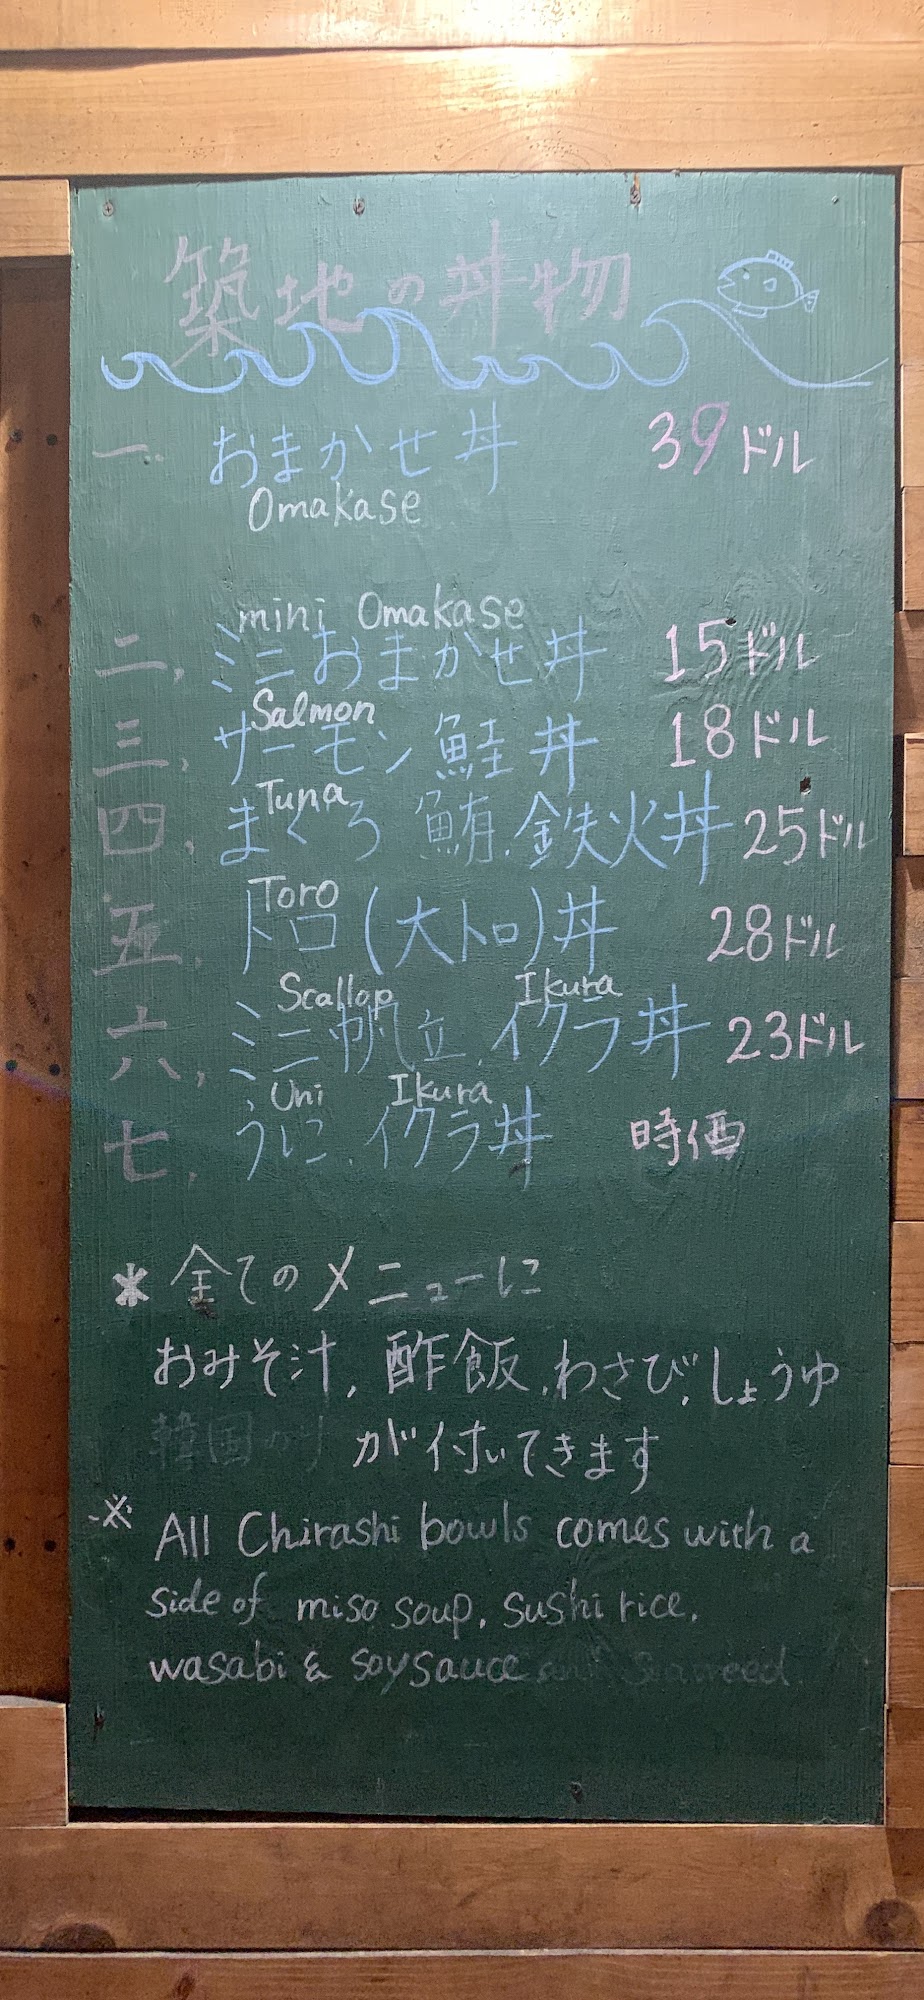 築地の丼物
一. おまかせ丼 39ドル
Omakase
mini Omakase
二, ミニおまかせ丼 15ドル
Salmon
三, サーモン 鮭丼 18ドル
Tuna
四, まぐろ 鮪, 金鉄火丼 25ドル
Toro
五, トロ(大トロ)丼 28ドル
Scallop Ikura
六, ミニ帆立, イクラ丼 23ドル
Uni Ikura
七, うに, イクラ丼 時価
* 全てのメニューに
おみそ汁, 酢飯, わさび, しょうゆ
韓国のり が付いてきます
※ All Chirashi bowls comes with a
side of miso soup, sushi rice,
wasabi & soy sauce and Seaweed.